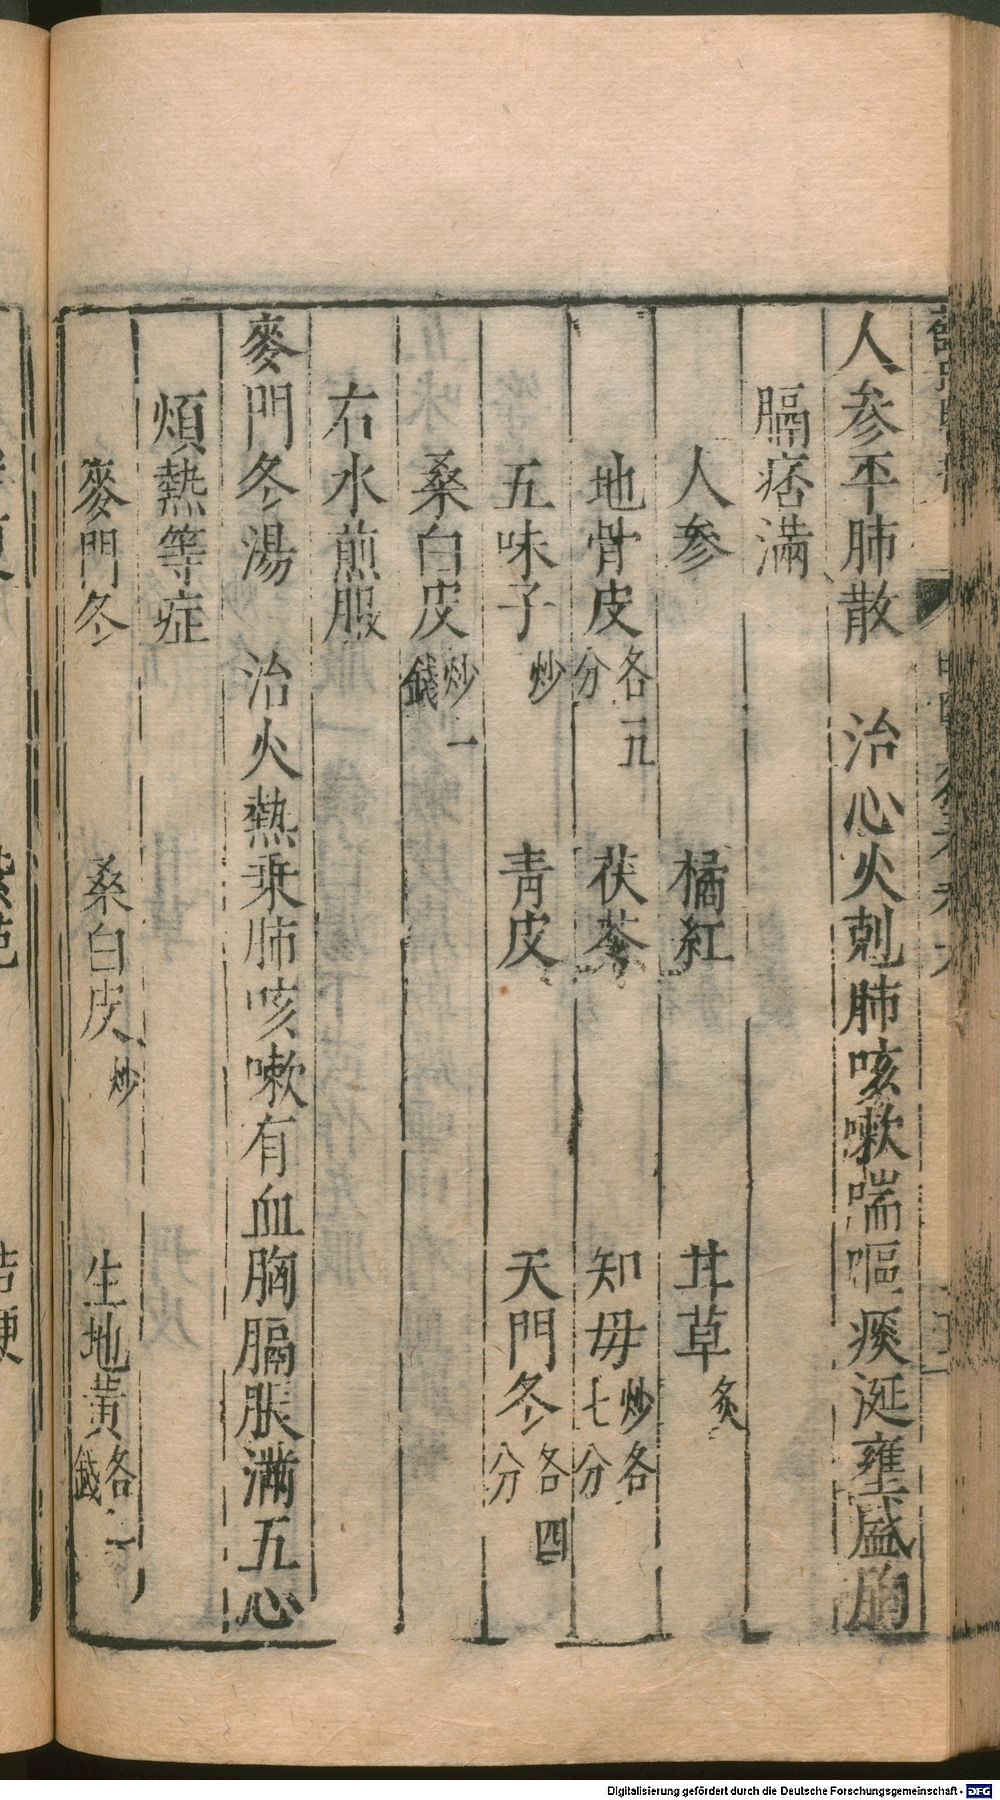 人參平肺散　治心火剋肺咳嗽喘嘔痰涎壅盛胸
膈痞滿
人參　橘紅　甘草炙
地骨皮各五分　茯苓　知母炒各七分
五味子炒　青皮　天門冬各四分
桑白皮炒一錢
右水煎服
麥門冬湯　治火熱乘肺咳嗽有血胸膈脹滿五心
煩熱等症
麥門冬　桑白皮炒　生地黃各一錢
Digitalisierung gefördert durch die Deutsche Forschungsgemeinschaft - DFG